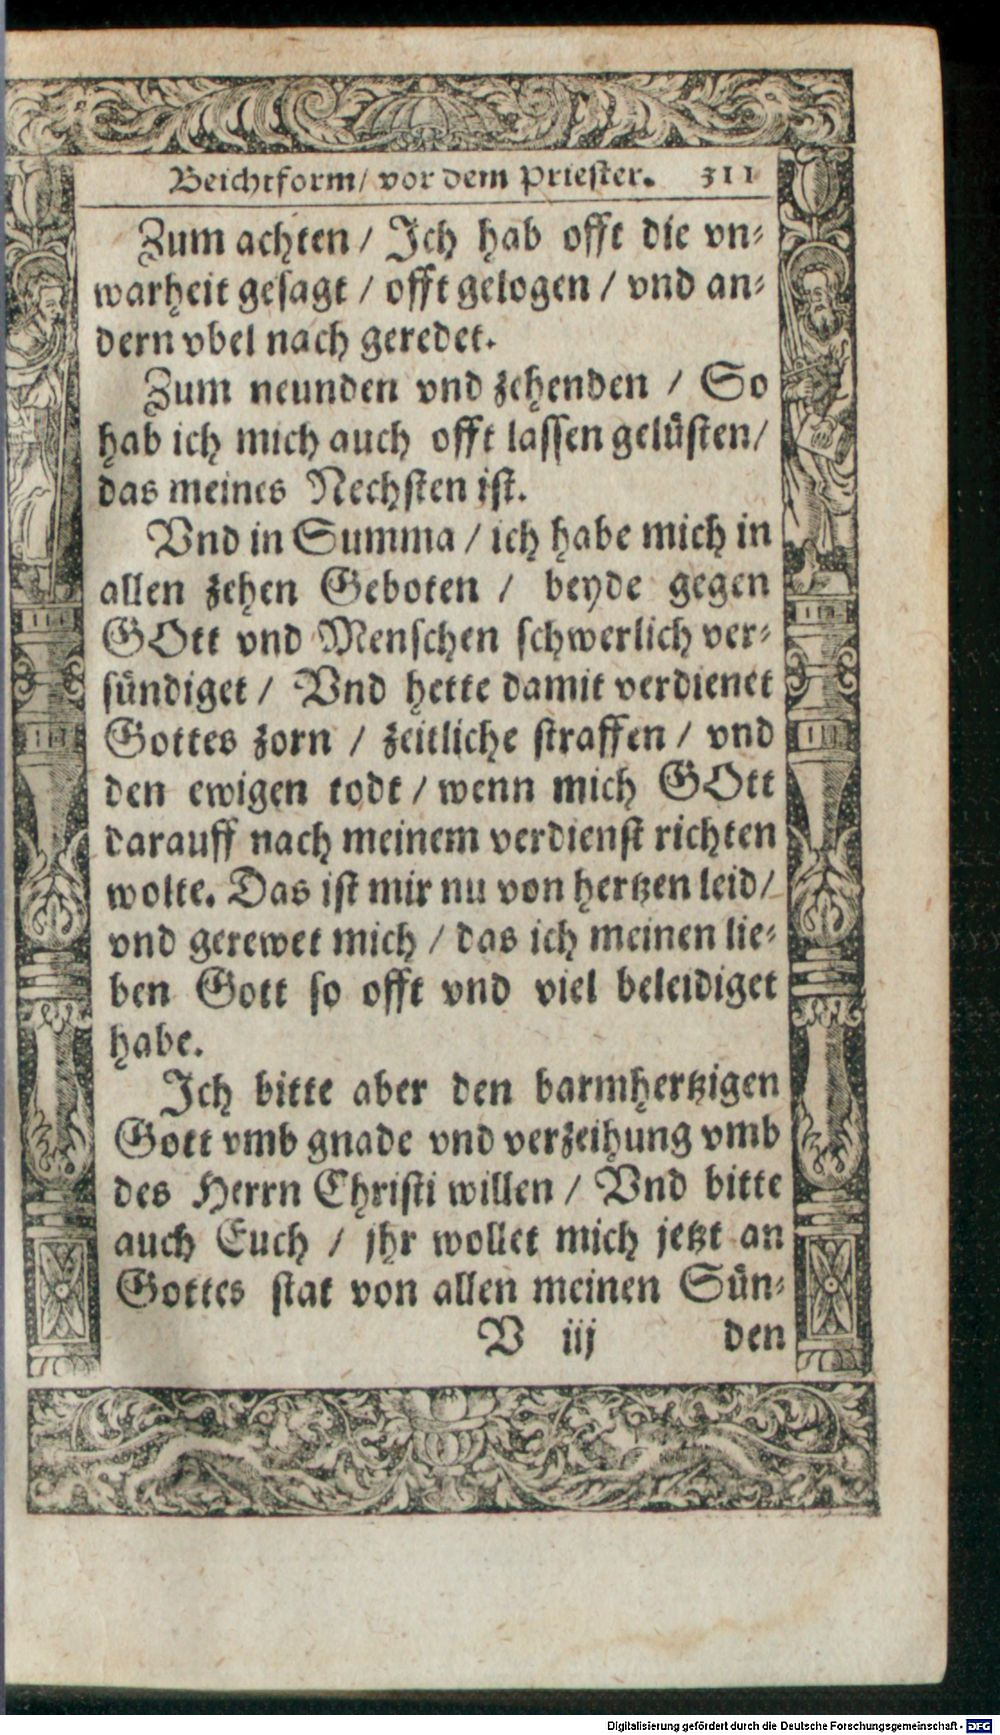 Beichtform/ vor dem Priester. 311
Zum achten / Ich hab offt die vn-
warheit gesagt / offt gelogen / vnd an-
dern vbel nach geredet.
Zum neunden vnd zehenden / So
hab ich mich auch offt lassen gelüsten/
das meines Nechsten ist.
Vnd in Summa / ich habe mich in
allen zehen Geboten / beyde gegen
GOtt vnd Menschen schwerlich ver-
sündiget / Vnd hette damit verdienet
Gottes zorn / zeitliche straffen / vnd
den ewigen todt / wenn mich GOtt
darauff nach meinem verdienst richten
wolte. Das ist mir nu von hertzen leid/
vnd gerewet mich / das ich meinen lie-
ben Gott so offt vnd viel beleidiget
habe.
Ich bitte aber den barmhertzigen
Gott vmb gnade vnd verzeihung vmb
des Herrn Christi willen / Vnd bitte
auch Euch / jhr wollet mich jetzt an
Gottes stat von allen meinen Sün-
V iij den
Digitalisierung gefördert durch die Deutsche Forschungsgemeinschaft - DFG